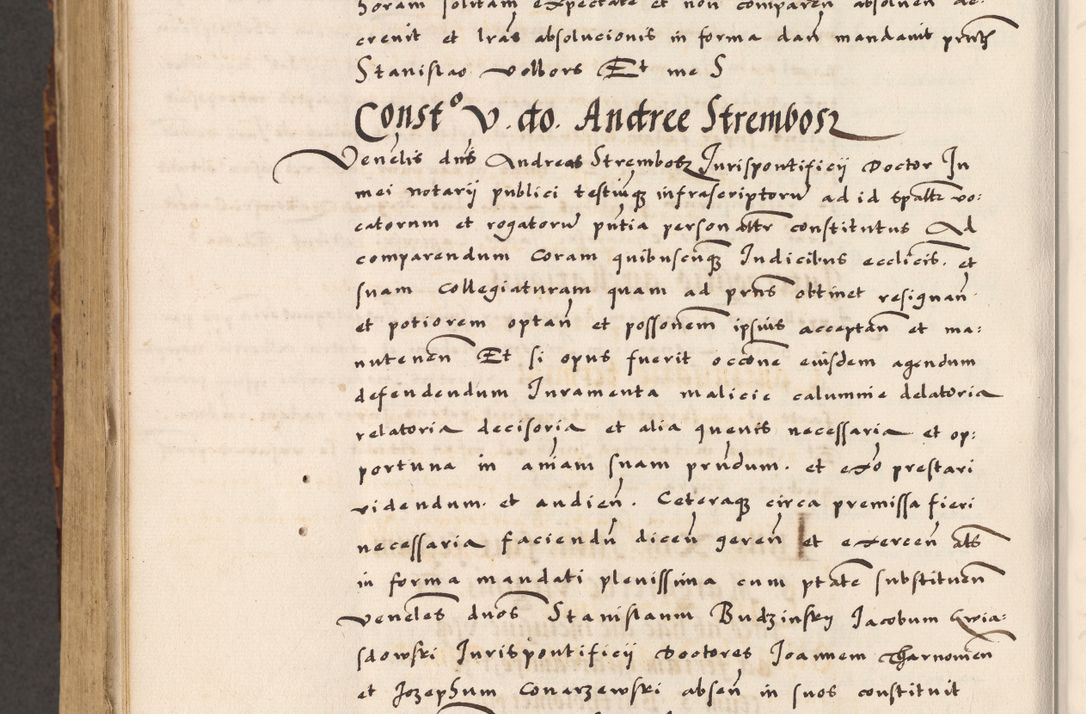 horam solitam expectate et non comparen absolven de-
crevit et lras absolucionis in forma dari mandavit pntibs
Stanislao Volbors Et me S
Constº V. do. Andree Strembosz
Venelis dns Andreas Strembosz Jurispontificii Doctor In
mei notarii publici testiuqz infrascriptoru ad id spaltr vo:
catorum et rogatoru pntia personaltr constitutus Ad
comparendum coram quibuscuqz Judicibus ecclicis. et
suam collegiaturam quam ad prns obtinet resignan
et potiorem optan et possonem ipsius acceptan et ma:
nutenen Et si opus fuerit occone eiusdem agendum
defendendum Juramenta malicie calumnie delatoria
relatoria decisoria et alia quevis necessaria et op:
portuna in aniam suam prndum. et exo prestari
videndum. et audien. Ceteraqz circa premissa fieri
necessaria faciendn dicen geren et exercen als
in forma mandati plenissima cum ptate substituen
Veneles dnos Stanislaum Budzinsky Jacobum Gwia:
sdowski Jurispontificii Doctores Joannem Tharnomen
et Jozephum Conarzewski absen in suos constituit